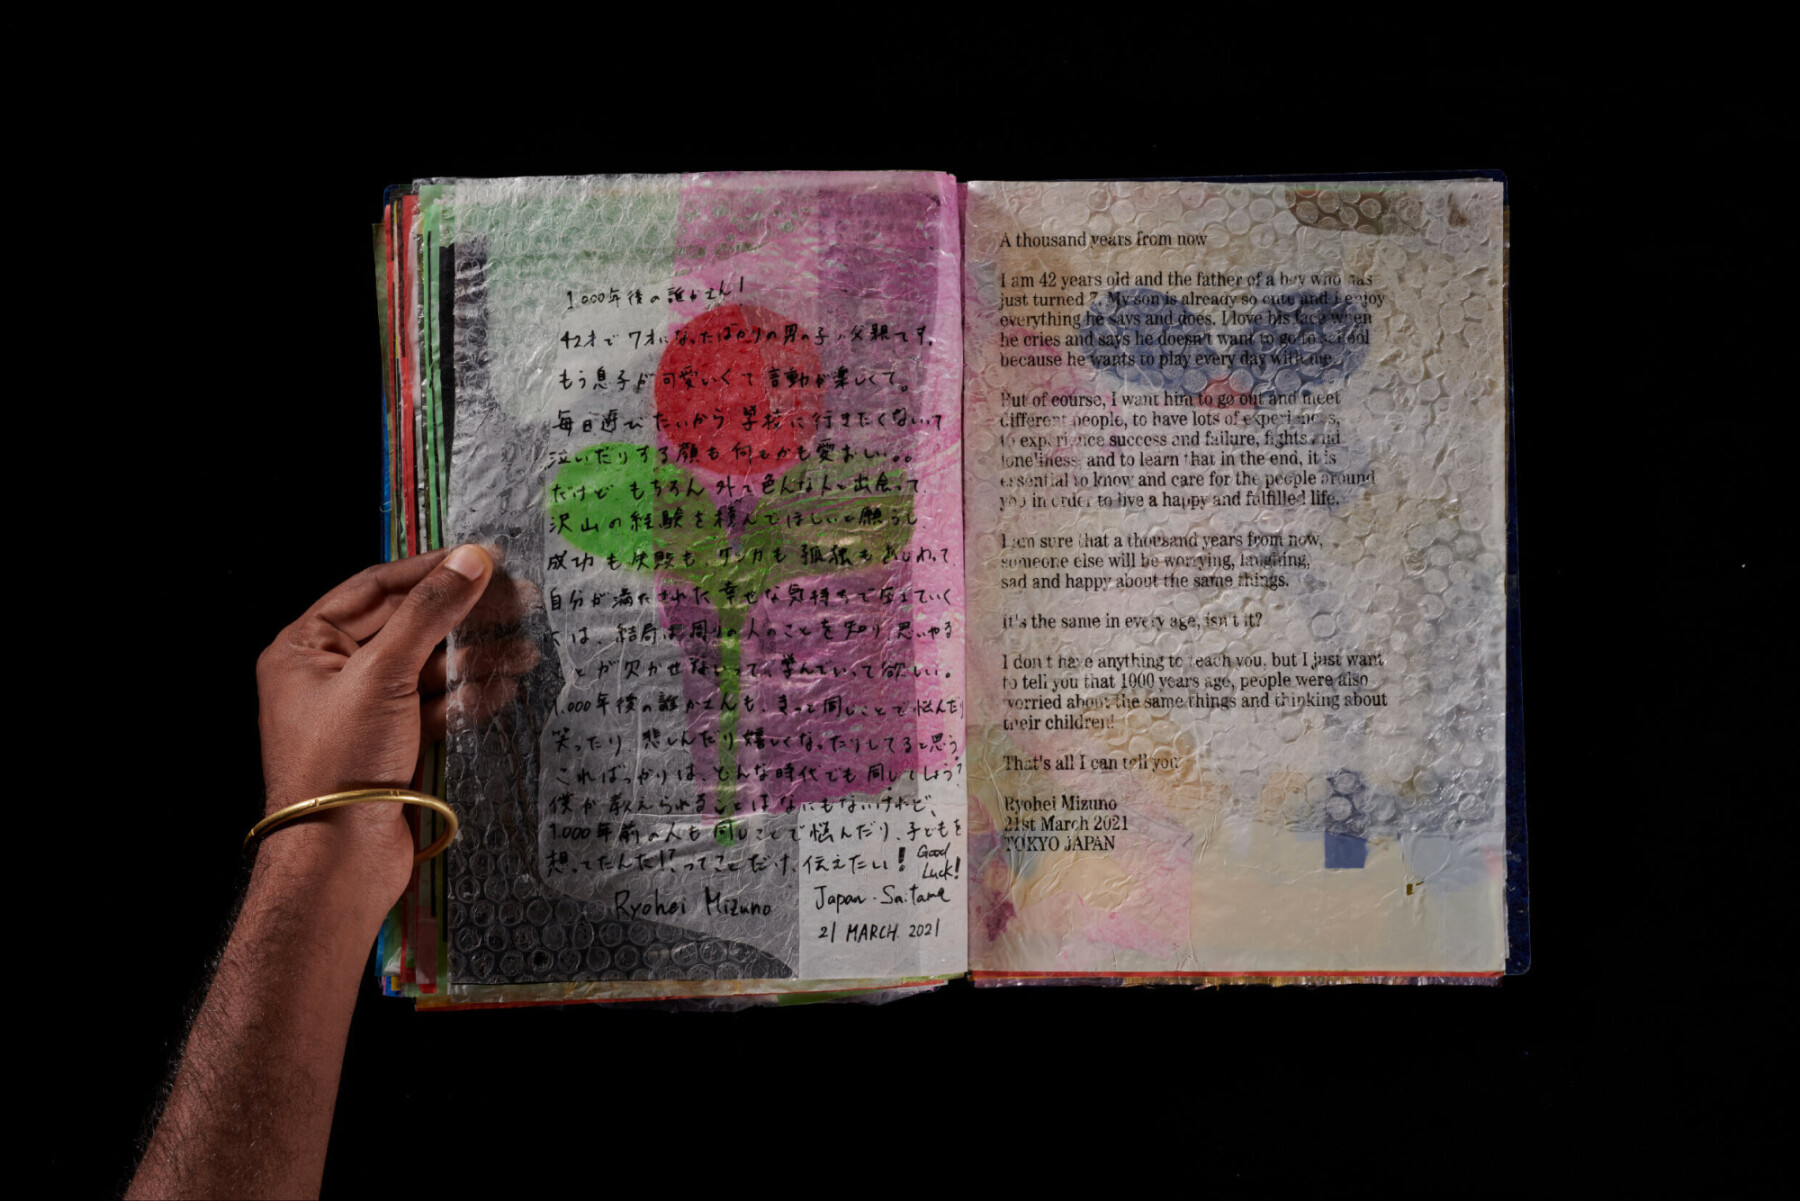 1,000年後の誰かさん!
42才で7才になったばかりの男の子の父親です。
もう息子が可愛いくて言動が楽しくて。
毎日遊びたいから学校に行きたくないって
泣いたりする顔も何もかも愛おしい。。
だけどもちろん外で色んな人と出会って、
沢山の経験を積んでほしいと願うし、
成功も失敗も、ケンカも孤独もあじわって、
自分が満たされた幸せな気持ちで生きていく
には、結局は周りの人のことを知り思いやる
ことが欠かせないって、学んでいって欲しい。
1,000年後の誰かさんも、きっと同じことで悩んだり
笑ったり、悲しんだり嬉しくなったりしてると思う。
こればっかりは、どんな時代でも同じでしょう?
僕が教えられることはなにもないけれど、
1,000年前の人も同じことで悩んだり、子どもを
想ってたんだ!?ってことだけ、伝えたい! Good
Luck!
Ryohei Mizuno
Japan・Saitama
21 MARCH. 2021
A thousand years from now
I am 42 years old and the father of a boy who has
just turned 7. My son is already so cute and I enjoy
everything he says and does. I love his face when
he cries and says he doesn't want to go to school
because he wants to play every day with me.
But of course, I want him to go out and meet
different people, to have lots of experiences,
to experience success and failure, fights and
loneliness, and to learn that in the end, it is
essential to know and care for the people around
you in order to live a happy and fulfilled life.
I am sure that a thousand years from now,
someone else will be worrying, laughing,
sad and happy about the same things.
It's the same in every age, isn't it?
I don't have anything to teach you, but I just want
to tell you that 1000 years ago, people were also
worried about the same things and thinking about
their children!
That's all I can tell you
Ryohei Mizuno
21st March 2021
TOKYO JAPAN